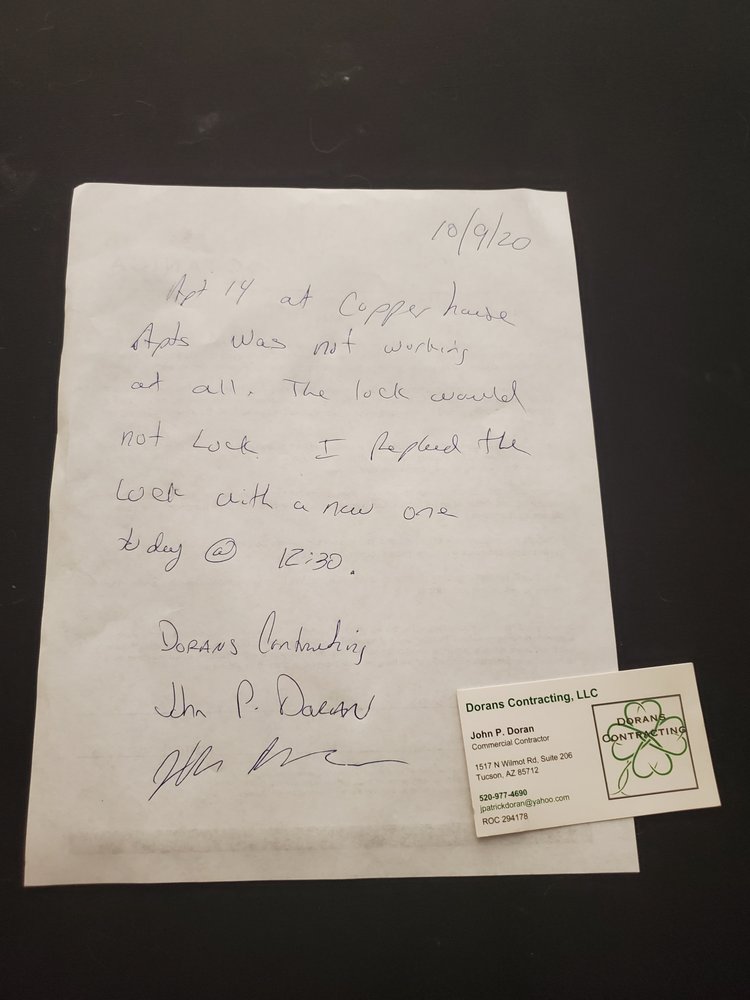 10/9/20
Apt 14 at Copper house
Apts was not working
at all. The lock would
not Lock. I Replced the
Lock with a new one
today @ 12:30.
DORANS Contracting
John P. DORAN
Dorans Contracting, LLC
John P. Doran
Commercial Contractor
1517 N Wilmot Rd, Suite 206
Tucson, AZ 85712
520-977-4690
jpatrickdoran@yahoo.com
ROC 294178
DORANS
CONTRACTING